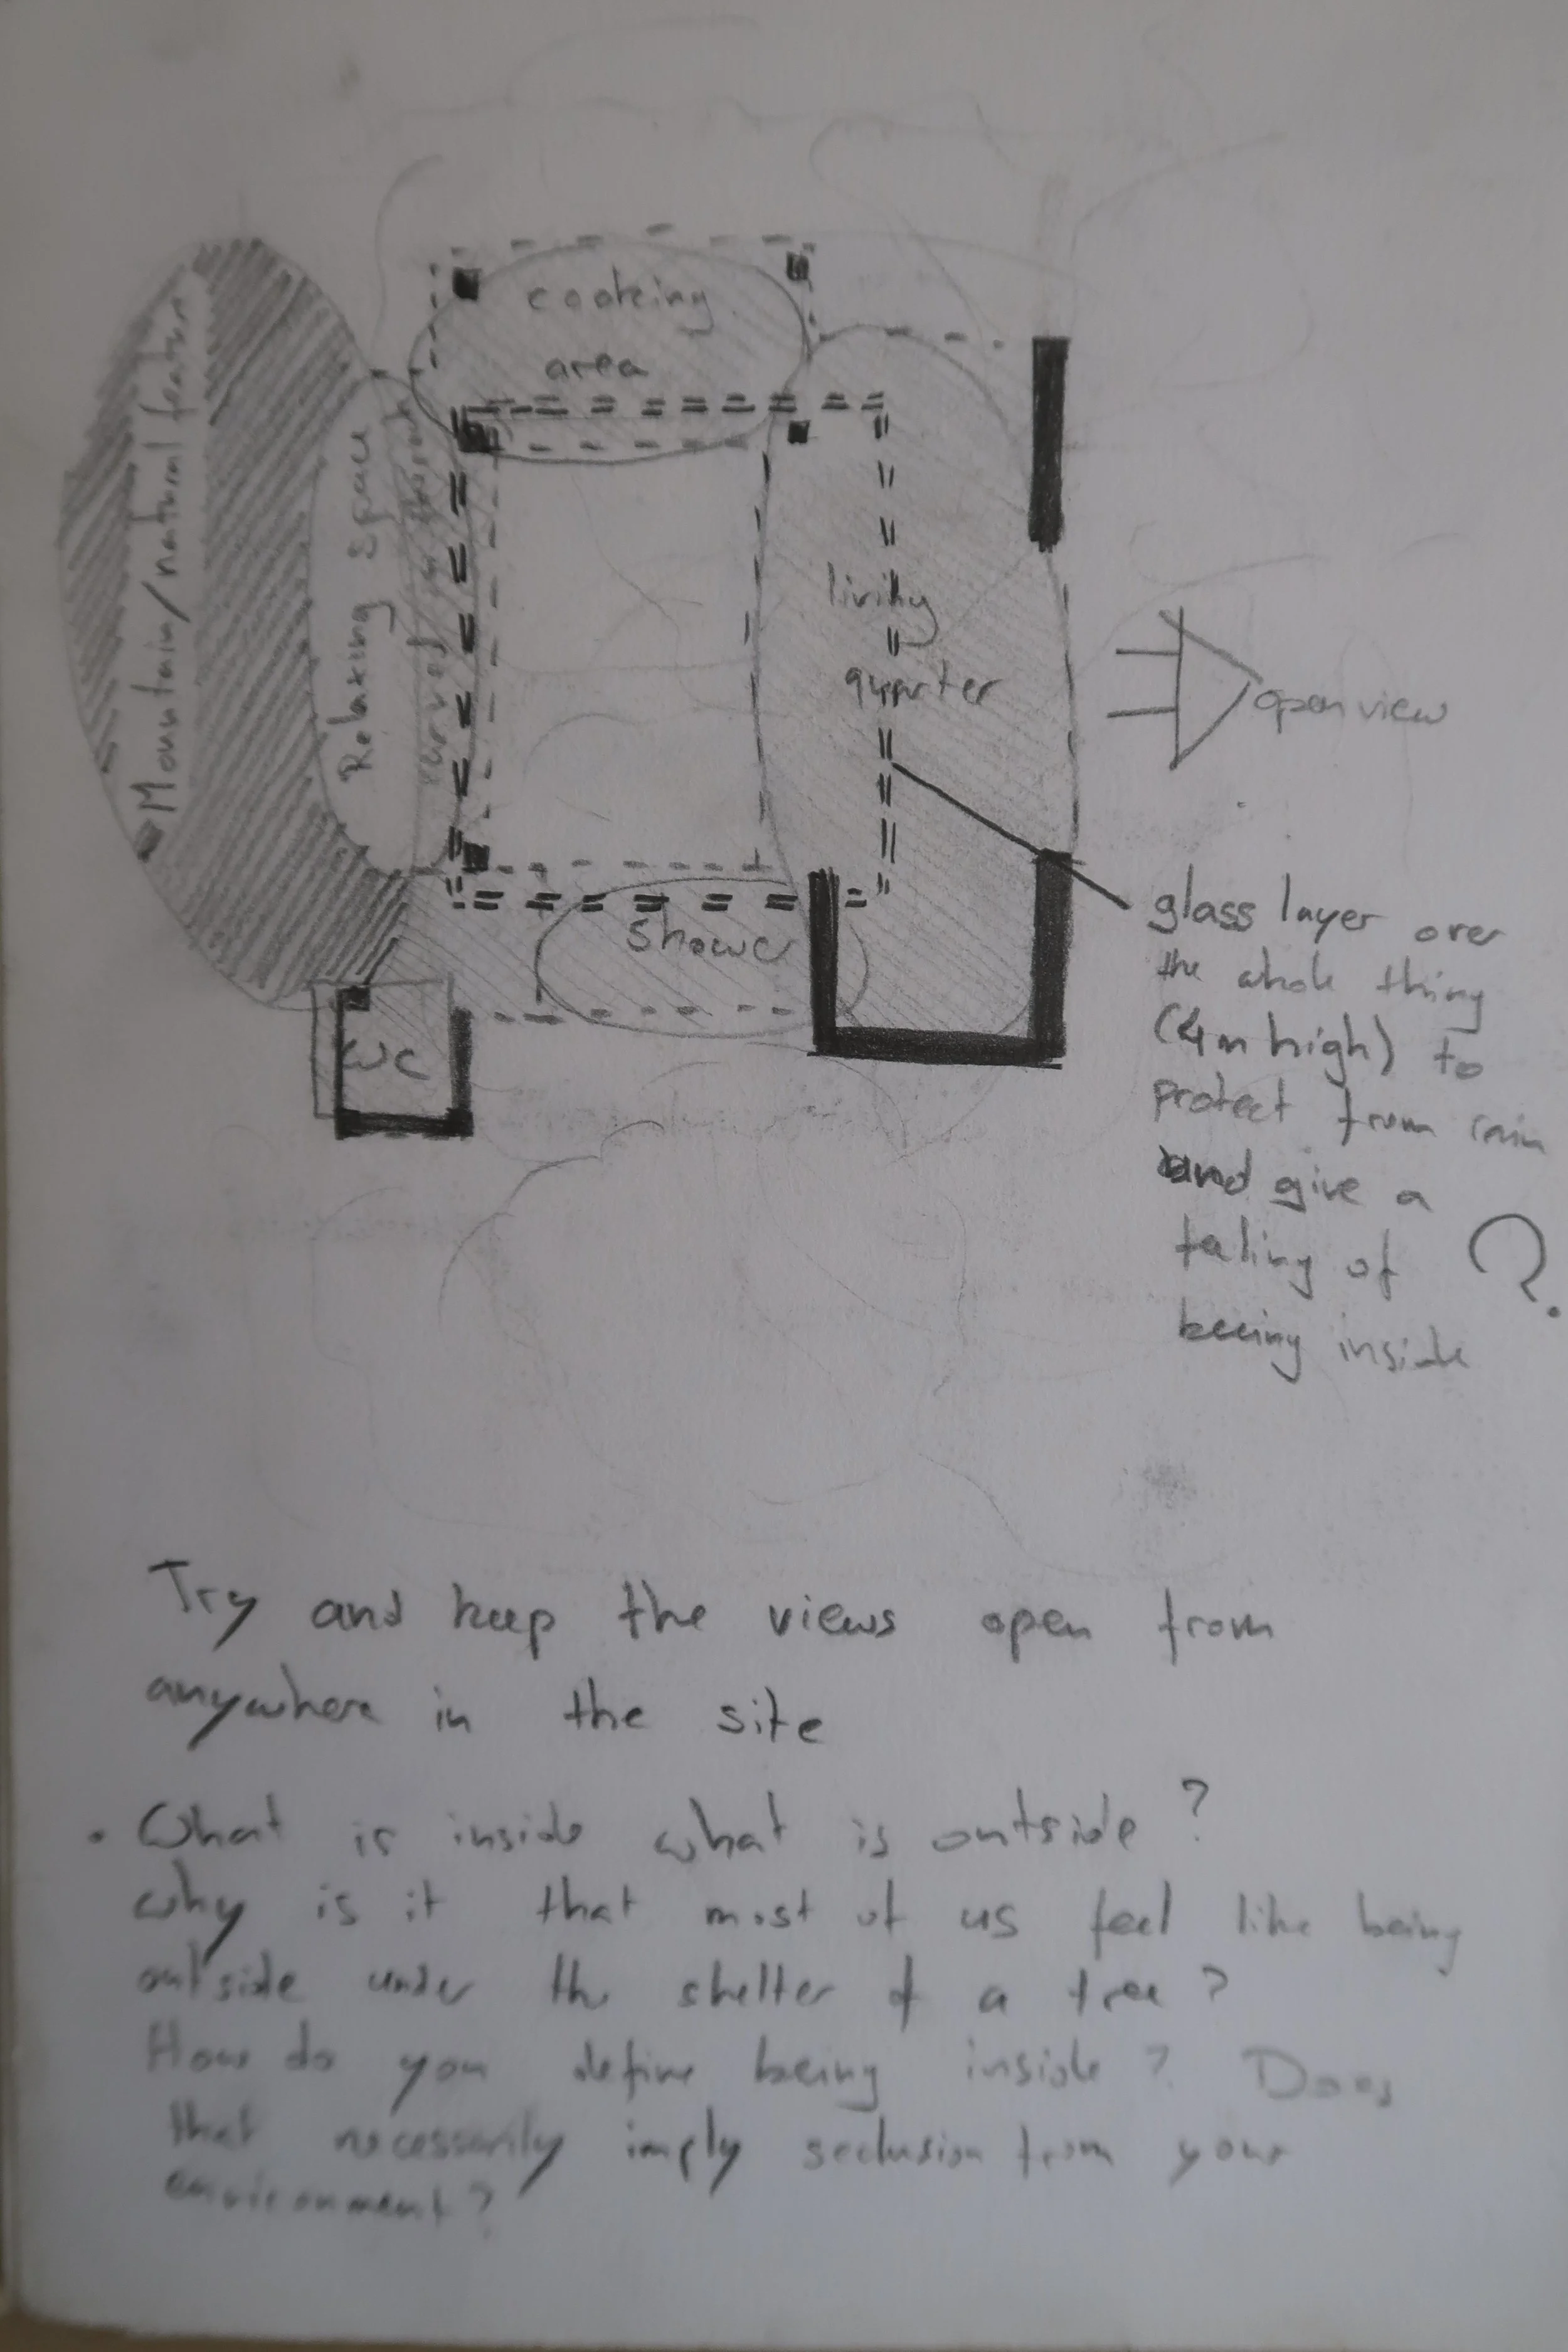 cooking
area
Mountain/natural feature
Relaxing space
living
quarter
open view
shower
WC
glass layer over
the whole thing
(4m high) to
protect from rain
and give a
feeling of ?
beeing inside
Try and keep the views open from
anywhere in the site
• What is inside what is outside?
Why is it that most of us feel like being
outside under the shelter of a tree?
How do you define being inside? Does
that necessarily imply seclusion from your
environment?